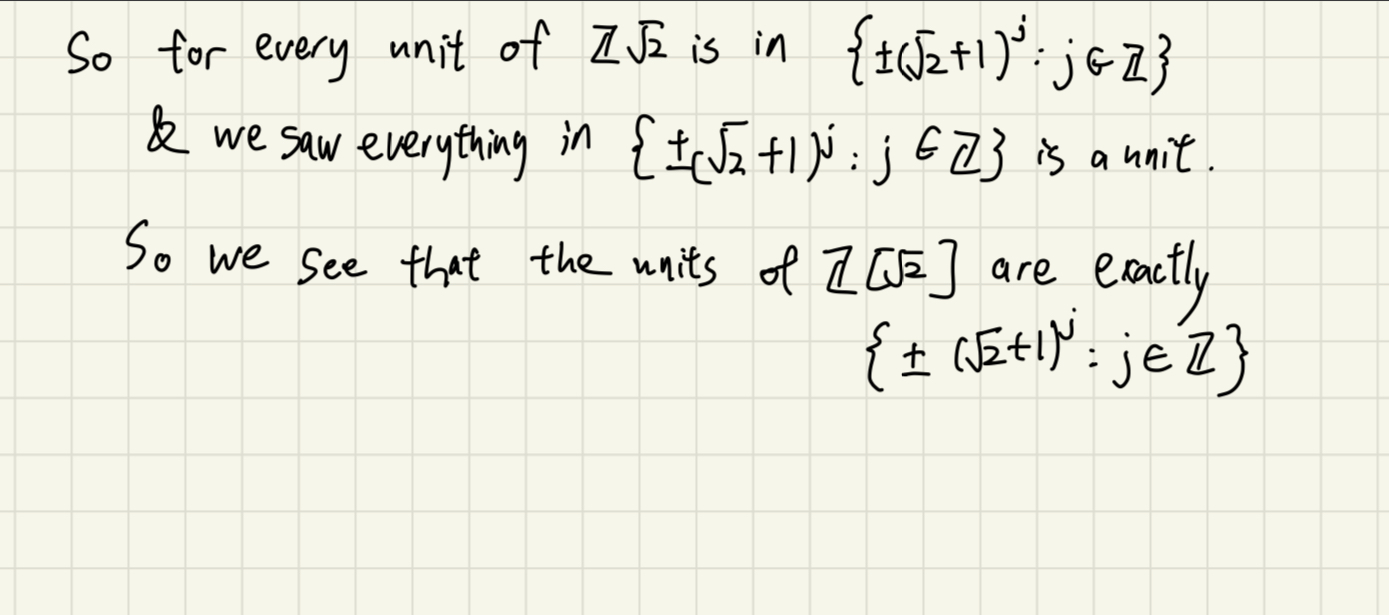 So for every unit of ℤ√2 is in {±(√2+1)^j : j ∈ ℤ}
& we saw everything in {±(√2+1)^j : j ∈ ℤ} is a unit.
So we see that the units of ℤ[√2] are exactly
{± (√2+1)^j : j ∈ ℤ}